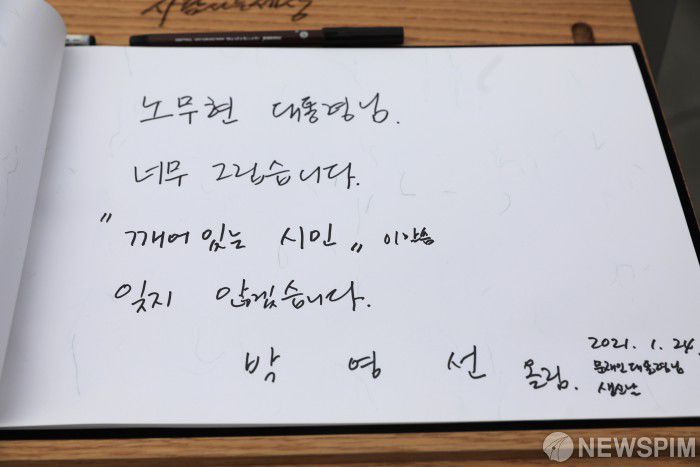 사람사는세상
노무현 대통령님.
너무 그립습니다.
"깨어있는 시민"
잊지 않겠습니다.
박 영 선 올림.
2021. 1. 24.
문재인대통령님
생신날
NEWSPIM